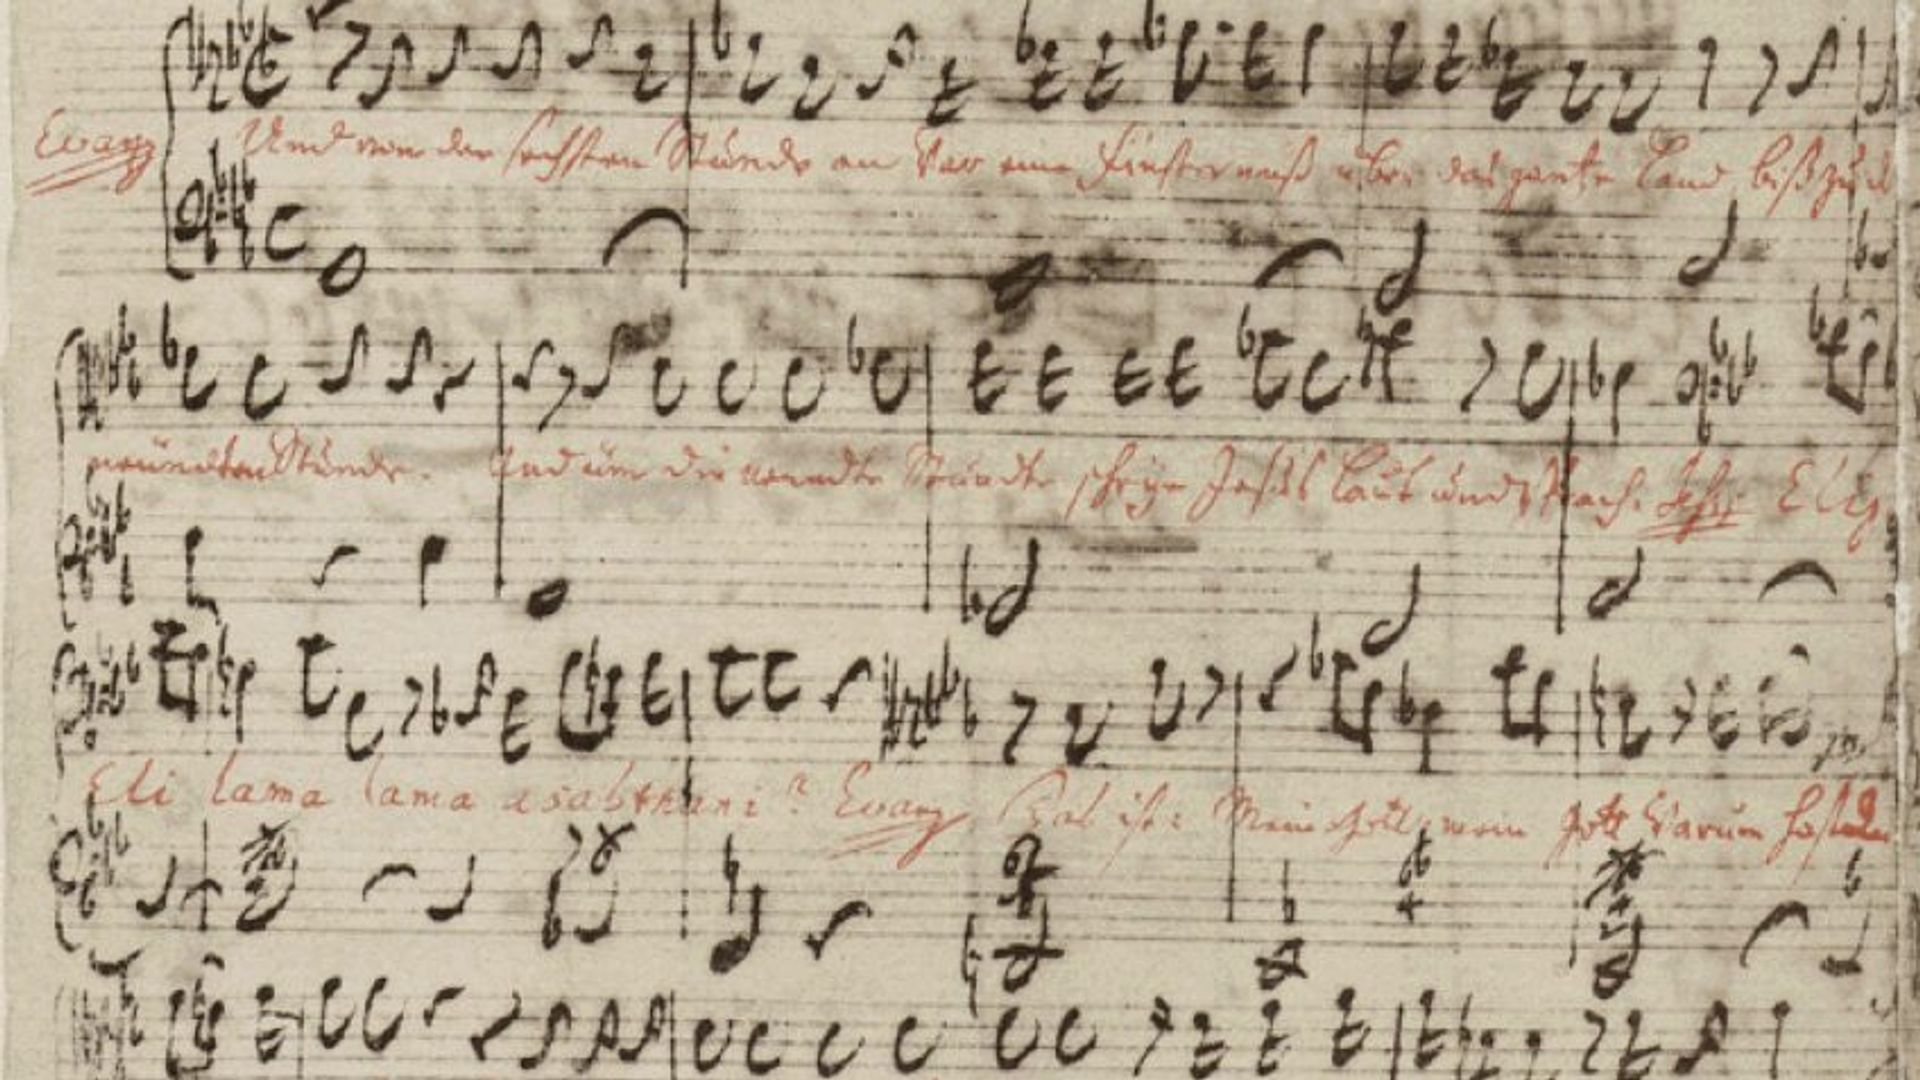 Evang Und von der sechsten Stunde an war eine Finsterniß über das gantze Land biß zu d
neundten Stunde. Und um die neundte Stunde schrye Jesus laut und sprach. Jesus Eli,
Eli lama lama asabthani? Evang Das ist: Mein Gott, mein Gott warum hast du